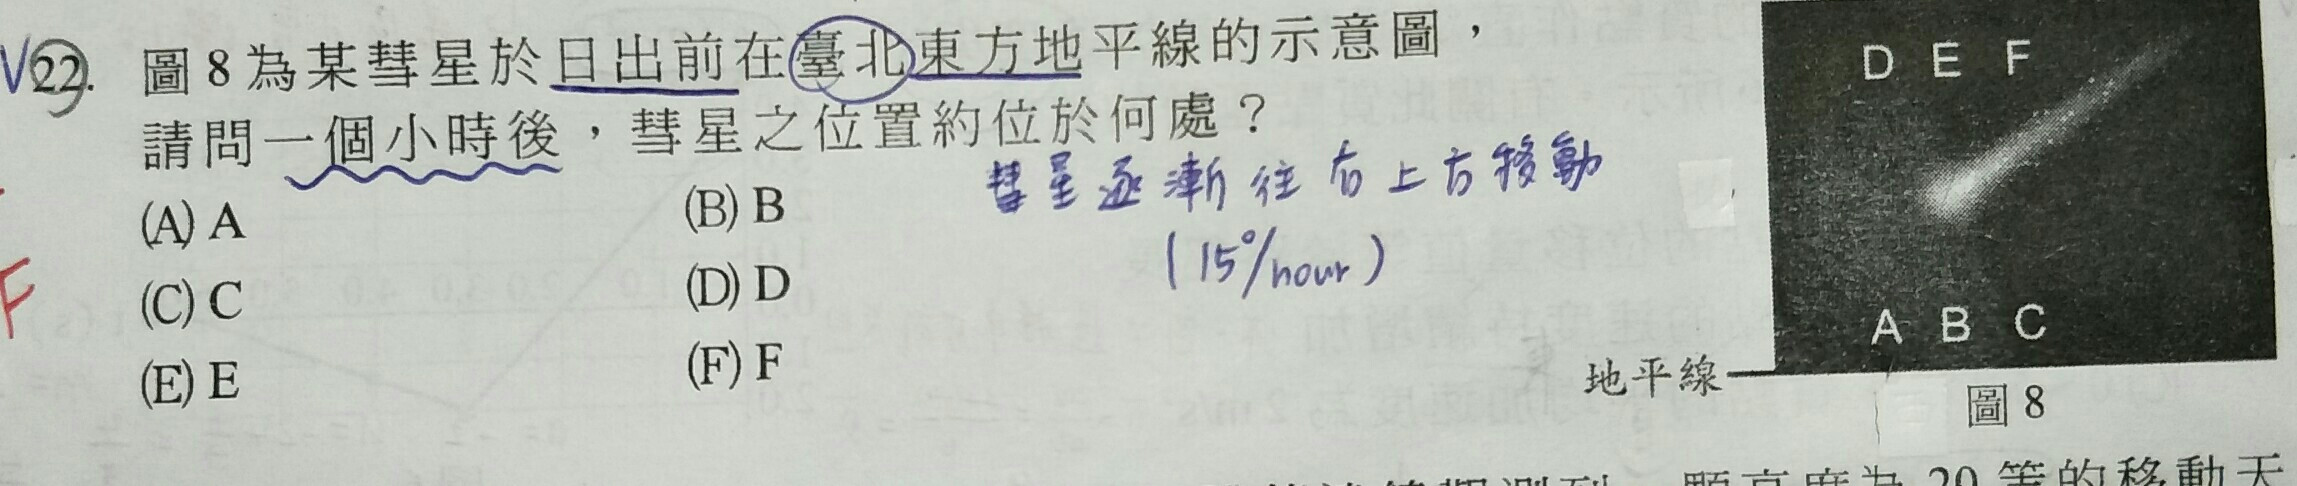 V22. 圖8為某彗星於日出前在臺北東方地平線的示意圖，
請問一個小時後，彗星之位置約位於何處？
(A) A (B) B
(C) C (D) D
(E) E (F) F
彗星逐漸往右上方移動
(15°/hour)
F
D E F
A B C
地平線
圖8
20等的移動天